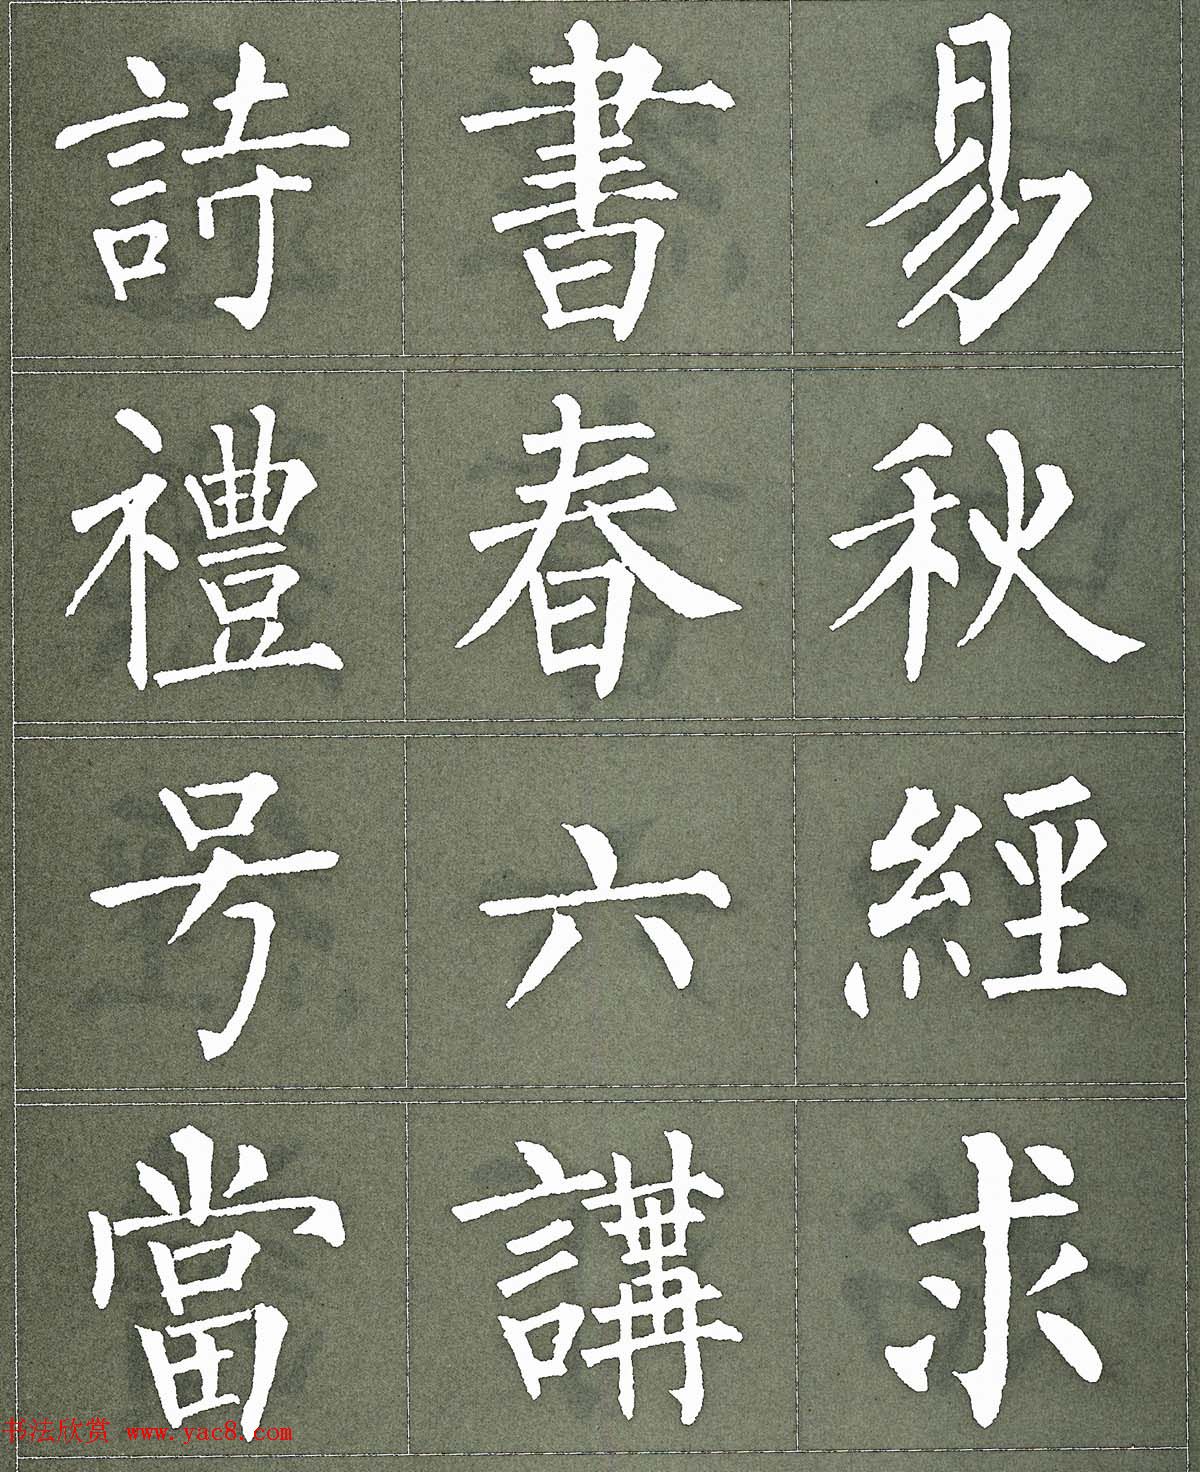 詩書易
禮春秋
号六經
當講求
书法欣赏 www.yac8.com